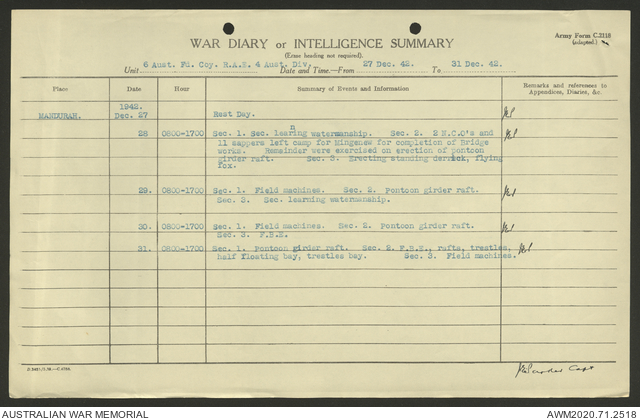 Army Form C.2118
(adapted.)
WAR DIARY or INTELLIGENCE SUMMARY
(Erase heading not required).
Unit 6 Aust. Fd. Coy. R.A.E. 4 Aust. Div. Date and Time.—From 27 Dec. 42. To 31 Dec. 42.
Place Date Hour Summary of Events and Information Remarks and references to
Appendices, Diaries, &c.
1942.
MANDURAH. Dec. 27 Rest Day.
n
28 0800-1700 Sec. 1. Sec. learing watermanship. Sec. 2. 2 N.C.O's and
11 sappers left camp for Mingenew for completion of Bridge
works. Remainder were exercised on erection of pontoon
girder raft. Sec. 3. Erecting standing derrick, flying
fox.
29. 0800-1700 Sec. 1. Field machines. Sec. 2. Pontoon girder raft.
Sec. 3. Sec. learning watermanship.
30. 0800-1700 Sec. 1. Field machines. Sec. 2. Pontoon girder raft.
Sec. 3. F.B.E.
31. 0800-1700 Sec. 1. Pontoon girder raft. Sec. 2. F.B.E., rafts, trestles,
half floating bay, trestles bay. Sec. 3. Field machines.
Capt
AUSTRALIAN WAR MEMORIAL AWM2020.71.2518